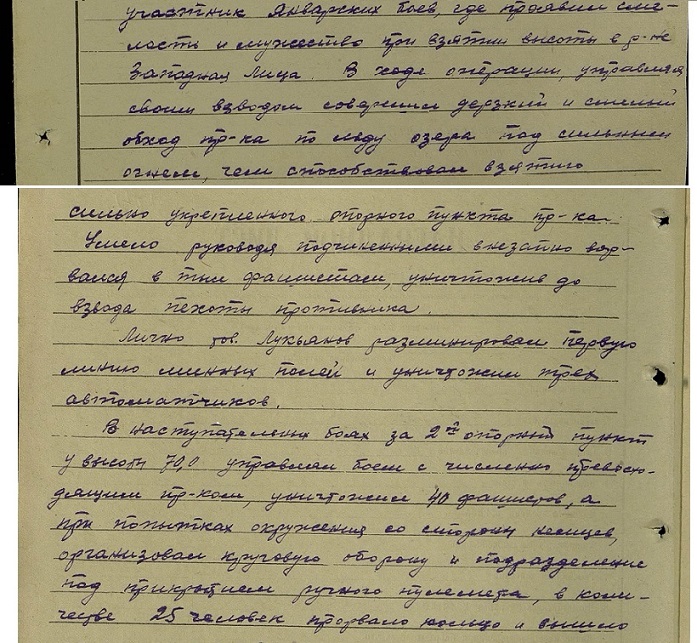 участник Январских боев, где проявил сме-
лость и мужество при взятии высоты в р-не
Западная Лица. В ходе операции, управляя
своим взводом совершил дерзкий и смелый
обход пр-ка по льду озера под сильным
огнем, чем способствовал взятию
сильно укрепленного опорного пункта пр-ка.
Умело руководя подчиненными внезапно вор-
вался в тыл фашистам, уничтожив до
взвода пехоты противника.
Лично тов. Лукьянов разминировал первую
линию минных полей и уничтожил трех
автоматчиков.
В наступательных боях за 2й опорный пункт
у высоты 70,0 управлял боем с численно превосхо-
дящим пр-ком, уничтожил 40 фашистов, а
при попытках окружения со стороны немцев,
организовал круговую оборону и подразделение
под прикрытием ручного пулемета, в коли-
честве 25 человек прорвало кольцо и вышло